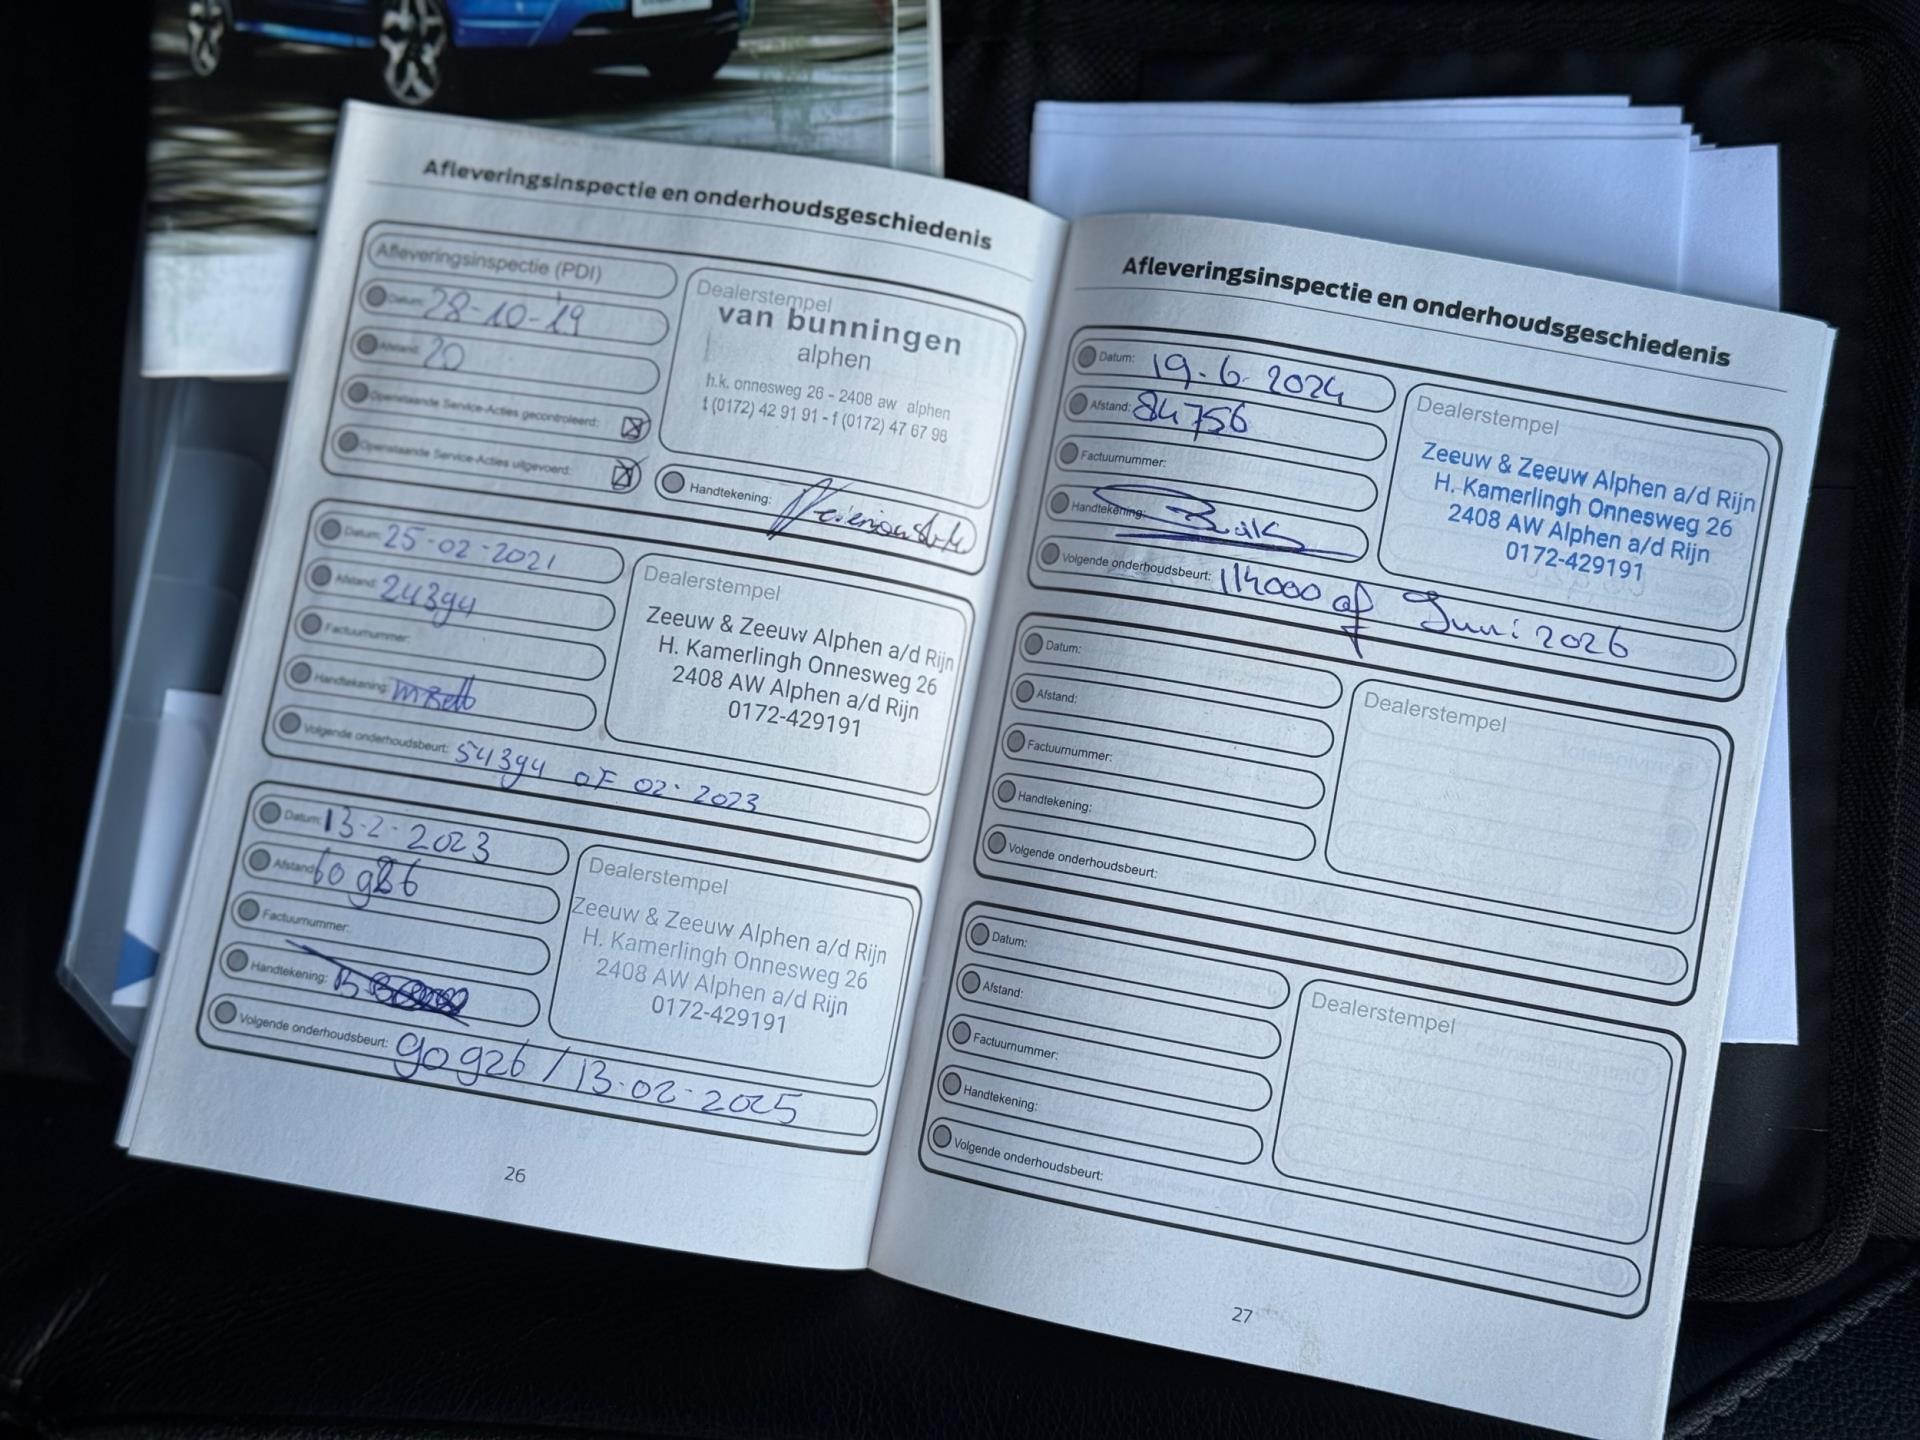 Afleveringsinspectie en onderhoudsgeschiedenis
Afleveringsinspectie (PDI)
Datum: 28-10-'19
Afstand: 20
Openstaande Service-Acties gecontroleerd:
Openstaande Service-Acties uitgevoerd:
Dealerstempel
van bunningen
alphen
h.k. onnesweg 26 - 2408 aw alphen
t (0172) 42 91 91 - f (0172) 47 67 98
Handtekening:
Datum: 25-02-2021
Afstand: 24394
Factuurnummer:
Handtekening:
Volgende onderhoudsbeurt: 54394 OF 02-2023
Dealerstempel
Zeeuw & Zeeuw Alphen a/d Rijn
H. Kamerlingh Onnesweg 26
2408 AW Alphen a/d Rijn
0172-429191
Datum: 13-2-2023
Afstand: 60986
Factuurnummer:
Handtekening:
Volgende onderhoudsbeurt: 90926 / 13-02-2025
Dealerstempel
Zeeuw & Zeeuw Alphen a/d Rijn
H. Kamerlingh Onnesweg 26
2408 AW Alphen a/d Rijn
0172-429191
26
Afleveringsinspectie en onderhoudsgeschiedenis
Datum: 19.6.2024
Afstand: 84756
Factuurnummer:
Handtekening:
Volgende onderhoudsbeurt: 114000 of Juni 2026
Dealerstempel
Zeeuw & Zeeuw Alphen a/d Rijn
H. Kamerlingh Onnesweg 26
2408 AW Alphen a/d Rijn
0172-429191
Datum:
Afstand:
Factuurnummer:
Handtekening:
Volgende onderhoudsbeurt:
Dealerstempel
Datum:
Afstand:
Factuurnummer:
Handtekening:
Volgende onderhoudsbeurt:
Dealerstempel
27